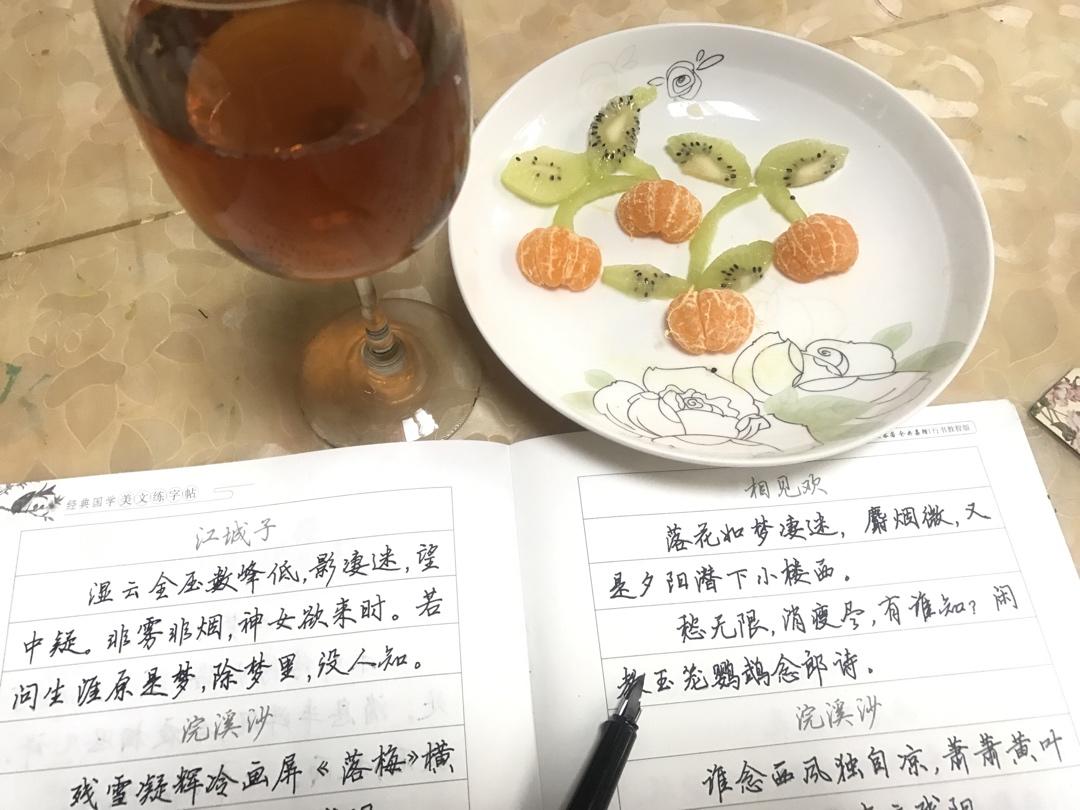 经典国学美文练字帖
江城子
湿云全压数峰低,影凄迷,望
中疑。非雾非烟,神女欲来时。若
问生涯原是梦,除梦里,没人知。
浣溪沙
残雪凝辉冷画屏《落梅》横
行书教程版
相见欢
落花如梦凄迷,麝烟微,又
是夕阳潜下小楼西。
愁无限,消瘦尽,有谁知?闲
教玉笼鹦鹉念郎诗。
浣溪沙
谁念西风独自凉,萧萧黄叶